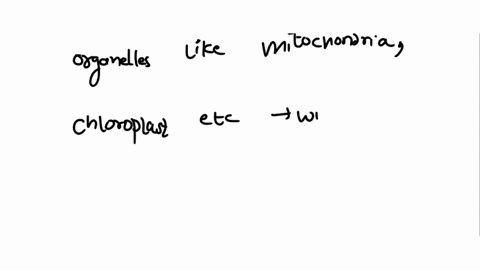 organelles like mitochondria,
chloroplast etc → wi